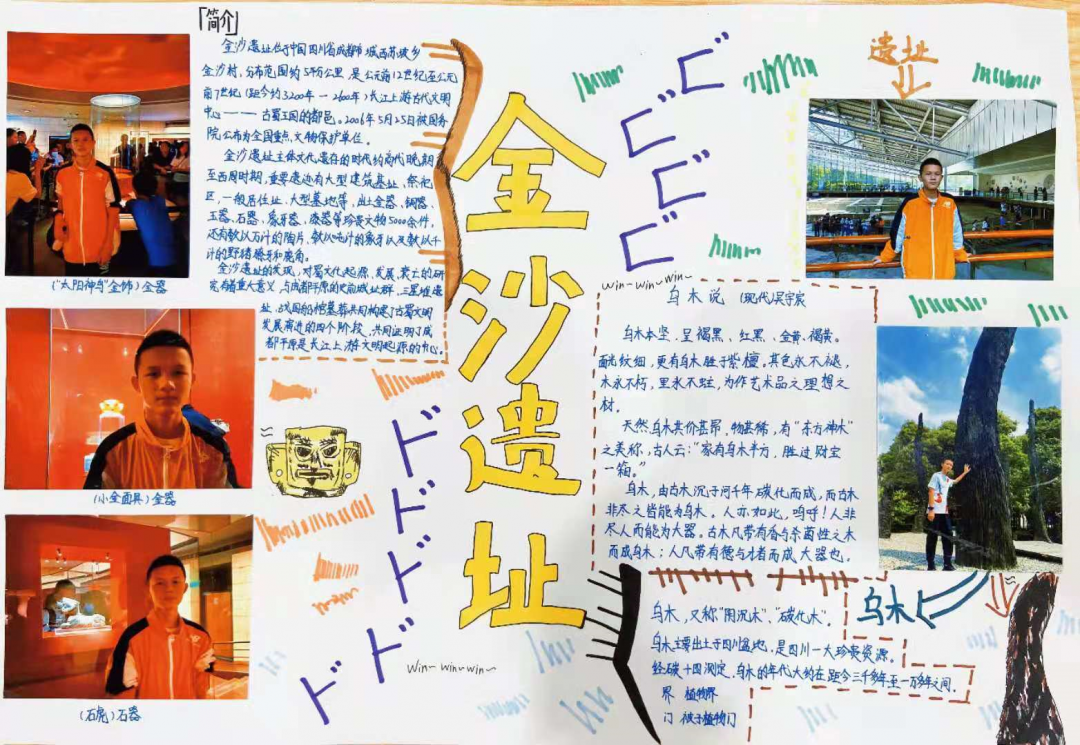 「简介」
金沙遗址位于中国四川省成都市城西苏坡乡
金沙村，分布范围约5平方公里，是公元前12世纪至公元
前7世纪（距今约3200年一2600年）长江上游古代文明
中心———古蜀王国的都邑。2006年5月25日被国务
院公布为全国重点文物保护单位。
金沙遗址主体文化遗存的时代约商代晚期
至西周时期，重要遗迹有大型建筑基址、祭祀
区，一般居住址、大型墓地等，出土金器、铜器、
玉器、石器、象牙器、漆器等珍贵文物5000余件，
还有数以万计的陶片、数以吨计的象牙以及数以千
计的野猪獠牙和鹿角。
金沙遗址的发现，对蜀文化起源、发展、衰亡的研
究有着重大意义，与成都平原的史前城址群、三星堆遗
址、战国船棺墓葬共同构建了古蜀文明
发展演进的四个阶段，共同证明了成
都平原是长江上游文明起源的中心。
（"太阳神鸟"金饰）金器
（小金面具）金器
（石虎）石器
金沙遗址
win~ win~win~
遗址
win~win~win~
乌木说 （现代）吴宇宸
乌木本坚，呈褐黑、红黑、金黄、褐黄。
面光纹细，更有乌木胜于紫檀。其色永不褪，
木永不朽，里永不蛀，为作艺术品之理想之
材。
天然乌木其价甚昂，物甚稀，有"东方神木"
之美称，古人云："家有乌木半方，胜过财宝
一箱。"
乌木，由古木沉于河千年碳化而成，而古木
非尽之皆能为乌木。人亦如此，呜呼！人非
尽人而能为大器。古木凡带有香与杀菌性之木
而成乌木；人凡带有德与才者而成大器也。
乌木
乌木，又称"阴沉木"、"碳化木"。
乌木主要出土于四川盆地，是四川一大珍贵资源。
经碳十四测定，乌木的年代大约在距今三千多年至一万多年之间。
界 植物界
门 被子植物门